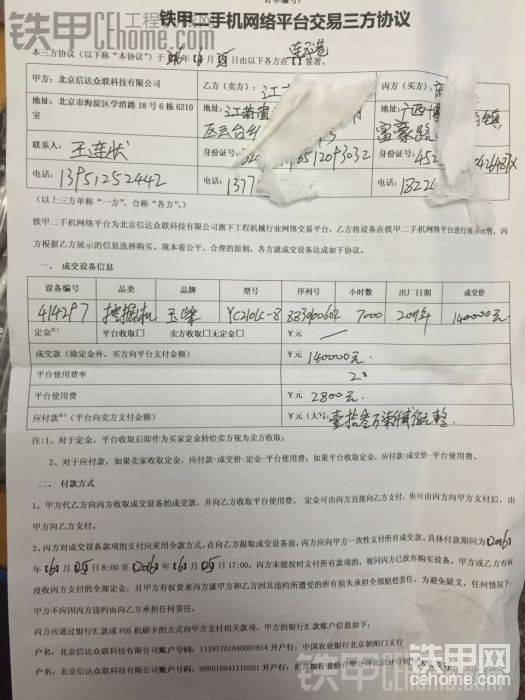 订单编号：
铁甲二手机网络平台交易三方协议
本三方协议（以下称“本协议”）于 年 月 日由以下各方在 签署。
甲方：北京信达众联科技有限公司 乙方（卖方）：江 丙方（买方）：
地址：北京市海淀区学清路 18 号 6 栋 6210 室 地址：江苏省 地址：广西博 镇
联系人：王连状 身份证号： 身份证号：452
电话：13951252442 电话：1377 电话：1822
（以上三方单称“一方”，合称“各方”。）
铁甲二手机网络平台为北京信达众联科技有限公司旗下工程机械行业网络交易平台，乙方将设备在铁甲二手机网络平台进行展示出售，丙
方根据乙方展示的信息选择购买。现本着公平、合理的原则，各方就成交设备达成如下协议。
一、 成交设备信息
设备编号 品类 品牌 型号 序列号 小时数 出厂日期 成交价
414297 挖掘机 玉柴 YC210LC-8 7000 2011年 140000元
定金 平台收取□ 卖方收取□无定金□ ￥元
成交款（除定金外，买方向平台支付金额） ￥元 140000元.
平台使用费率 2
平台使用费 ￥元 2800元.
应付款（平台向卖方支付金额） ￥元（大写：壹拾叁万柒仟 整
注：1、对于定金，平台收取后即作为买家定金转给卖方视为卖方收取；
2、对于应付款，如果卖家收取定金，应付款=成交价-定金-平台使用费；如果平台收取定金，应付款=成交价-平台使用费。
二、 付款方式
1、甲方代乙方向丙方收取成交设备的成交款，并向乙方收取平台使用费。 定金可由丙方直接向乙方支付，也可由丙方向甲方支付后，由
甲方向乙方支付。
2、丙方对成交设备款项的支付应采用全款方式。在向乙方提取成交设备前，丙方应向甲方一次性支付所有成交款。具体付款期间为 2016
年 月 日 8:00 至 2016 年 月 日 17:00。丙方未能按时支付所有款项的，视同丙方已放弃购买设备。甲方或乙方有权
没收丙方支付的全部定金，且甲方有权要求丙方就甲方和乙方因其违约所遭受的所有损失承担全部赔偿责任。为避免疑义，任何情况下，
甲方不应因丙方违约而向乙方承担任何责任。
丙方应通过银行汇款或 POS 机刷卡的方式向甲方支付相关款项，甲方的银行汇款账户信息如下：
户名：北京信达众联科技有限公司账户号码：11191701040001614 开户行：中国农业银行北京朝阳门支行
户名：北京信达众联科技有限公司账户号码：999016941110501 开户行：招商银行股份有限公司北京分行
铁甲 工程机械网
铁甲网